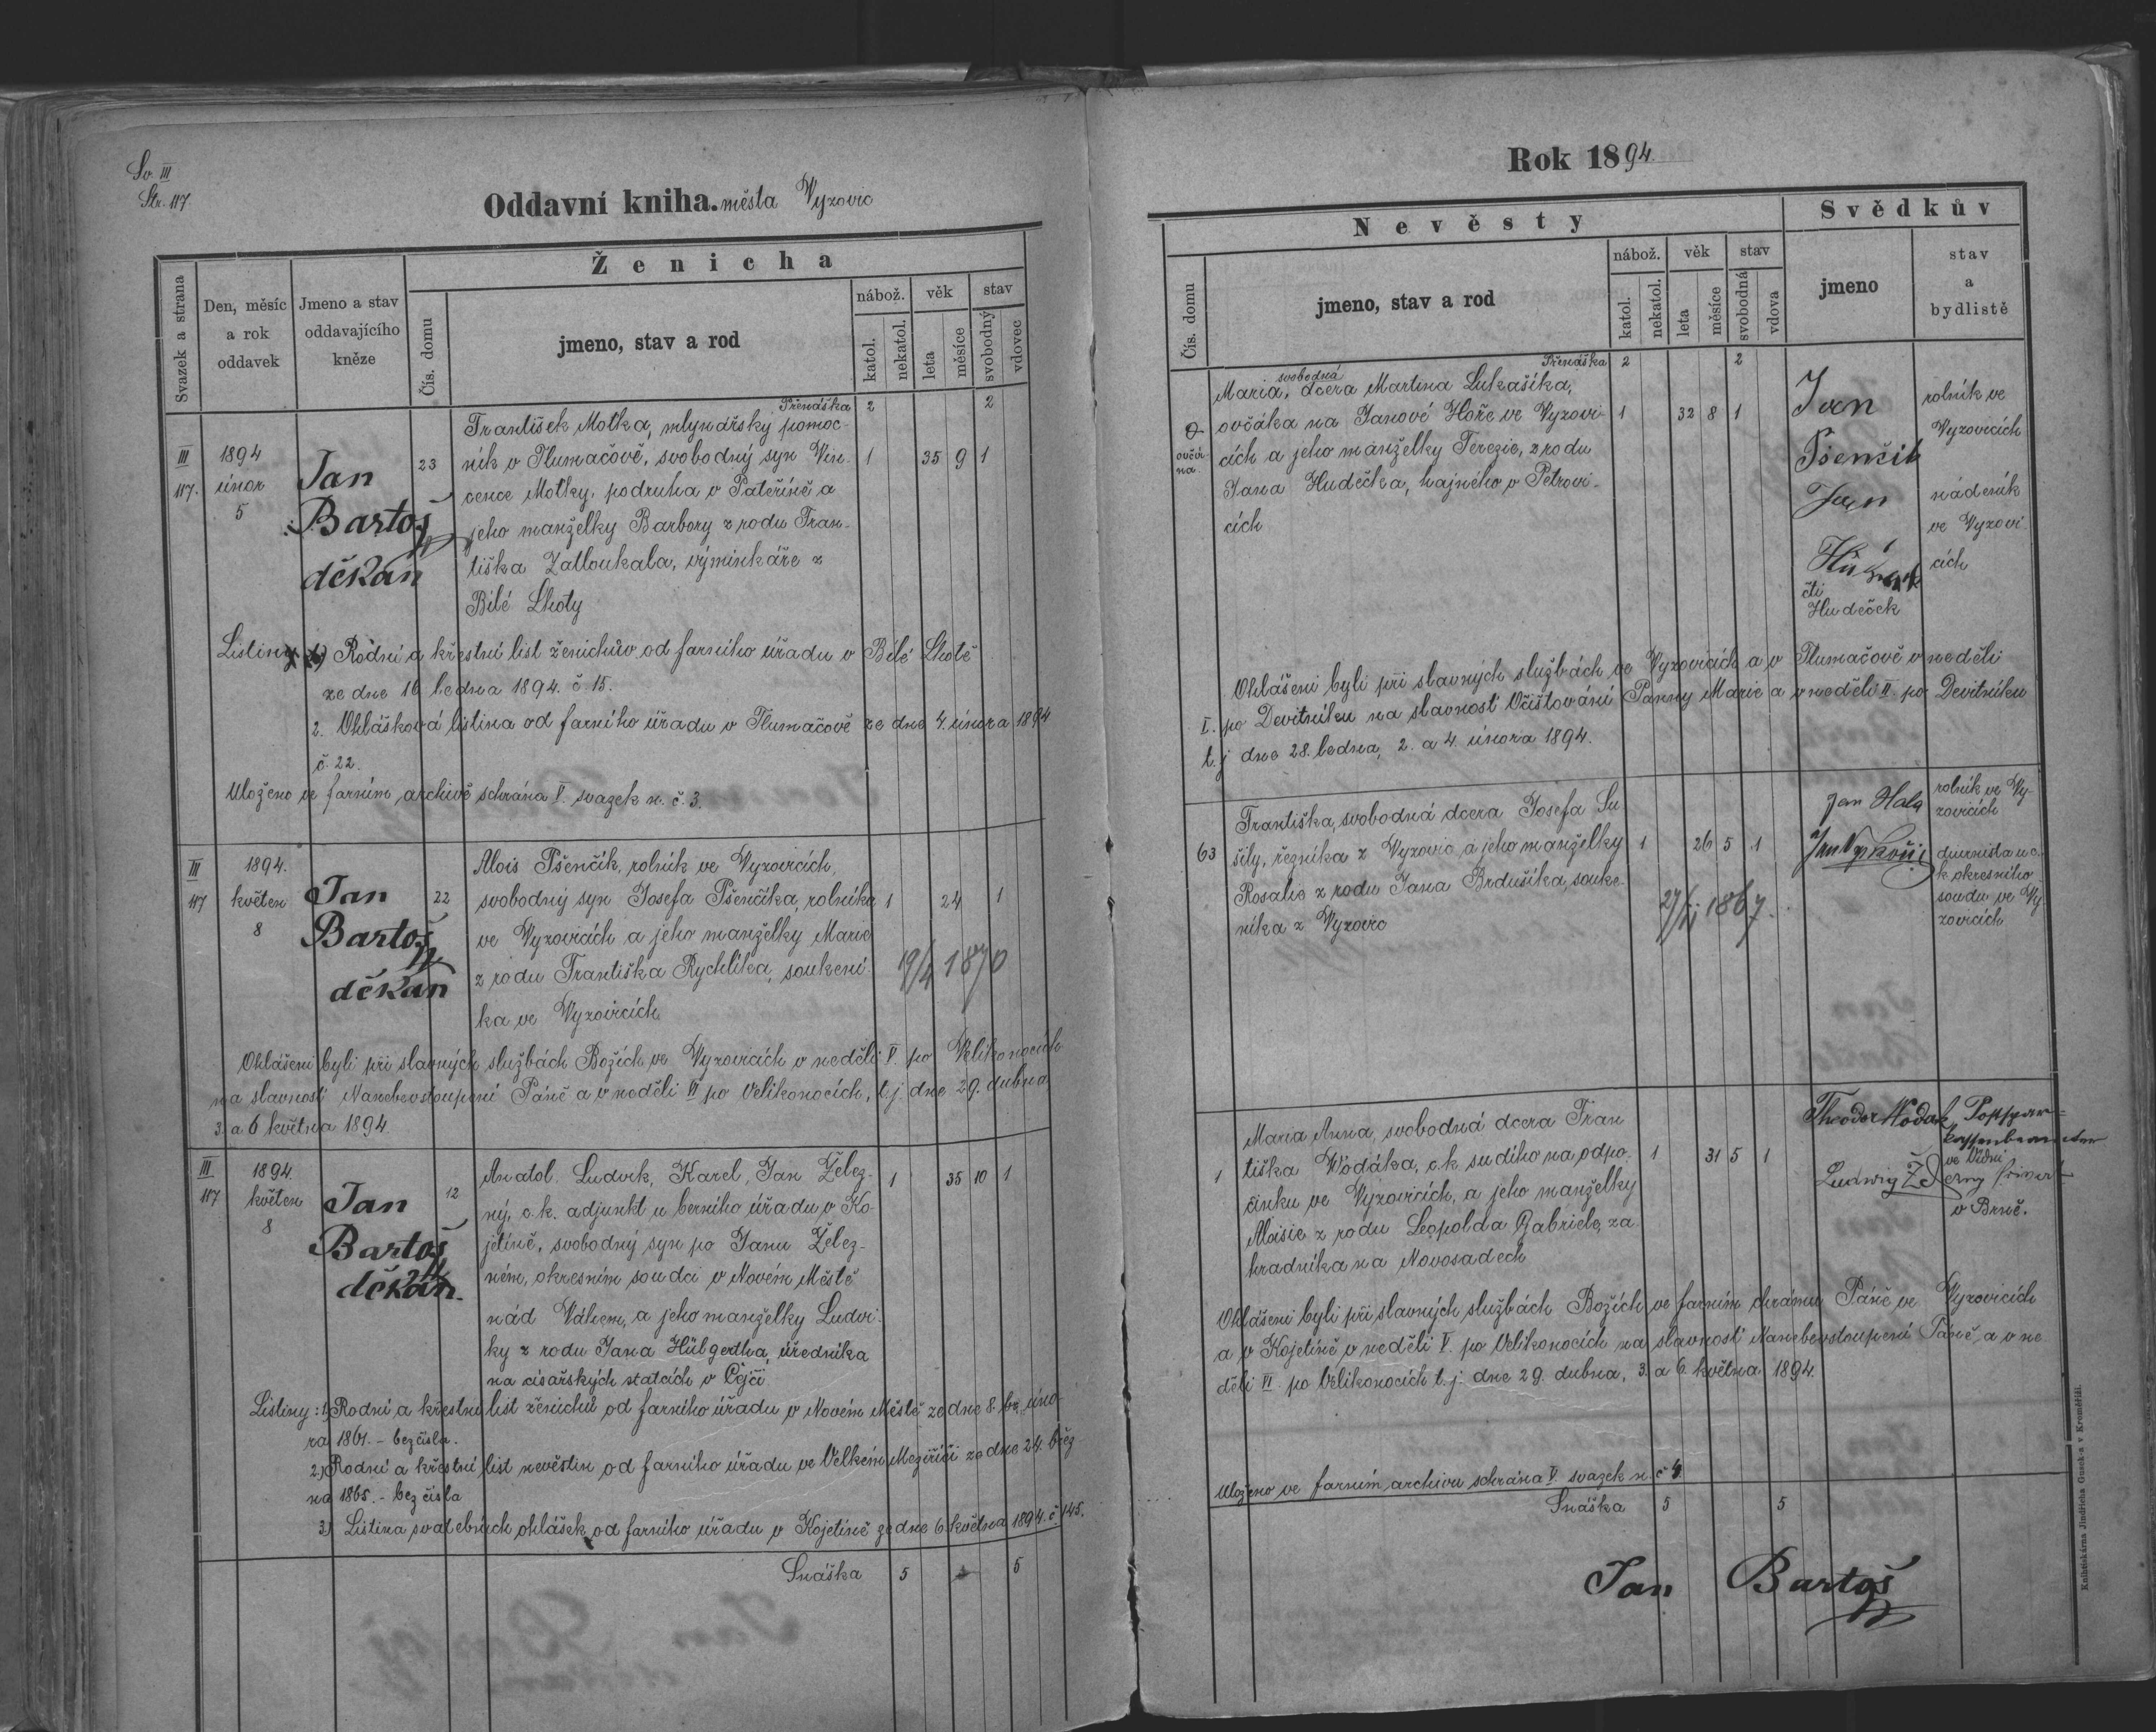 Sv. III
Str. 117
Oddavní kniha. města Vyzovic
Svazek a strana
Den, měsíc
a rok
oddavek
Jmeno a stav
oddavajícího
kněze
Ženicha
Čís. domu
jmeno, stav a rod
nábož.
věk
stav
katol.
nekatol.
leta
měsíce
svobodný
vdovec
Přenáška 2 2
III
117.
1894
únor
5
Jan
Bartoš
děkan
23
František Motka, mlynářsky pomoc-
ník v Tlumačově, svobodný syn Vin-
cence Motky, podruha v Pateříně a
jeho manželky Barbory z rodu Fran-
tiška Zatloukala, výminkáře z
Bílé Lhoty
1 35 9 1
Listiny 1) Rodní a křestní list ženichův od farního úřadu v Bílé Lhotě
ze dne 16 ledna 1894. č. 15.
2. Ohlášková listina od farního úřadu v Tlumačově ze dne 4. února 1894
č. 22.
Uloženo ve farním archivě schrána V. svazek n. č. 3.
III
117
1894.
květen
8
Jan
Bartoš
děkan
22
Alois Pšenčík, rolník ve Vyzovicích,
svobodný syn Josefa Pšenčíka, rolníka
ve Vyzovicích a jeho manželky Marie
z rodu Františka Rychlíka, soukení-
ka ve Vyzovicích
1 24 1
19/4 1870
Ohlášeni byli při slavných službách Božích ve Vyzovicích v neděli V. po Velikonocích
na slavnost Nanebevstoupení Páně a v neděli VI po Velikonocích, t. j. dne 29. dubna
3. a 6 května 1894.
III.
117
1894.
květen
8
Jan
Bartoš
děkan.
12
Anatol. Ludvik, Karel, Jan Želez-
ný, c. k. adjunkt u berního úřadu v Ko-
jetíně, svobodný syn po Janu Želez-
ném, okresním soudci v Novém Městě
nád Váhem, a jeho manželky Ludvi-
ky z rodu Jana Hübgertha, úředníka
na císařských statcích v Čejči
1 35 10 1
Listiny: 1) Rodní a křestní list ženichů od farního úřadu v Novém Městě ze dne 8. úno-
ra 1861. - bez čísla.
2) Rodní a křestní list nevěstin od farního úřadu ve Velkém Meziříčí ze dne 24. břez-
na 1865. - bez čísla
3) Listina svatebních ohlášek od farního úřadu v Kojetíně ze dne 6. května 1894. č. 145.
Snáška 5 5
Rok 1894.
Nevěsty
Svědkův
Čís. domu
jmeno, stav a rod
nábož.
věk
stav
katol.
nekatol.
leta
měsíce
svobodná
vdova
jmeno
stav
a
bydliště
Přenáška 2 2
ovčír-
na.
svobodná
Maria, dcera Martina Lukašíka,
ovčáka na Janové Hoře ve Vyzovi-
cích a jeho manželky Terezie, z rodu
Jana Hudečka, hajného v Petrovi-
cích
1 32 8 1
Jan
Pšenčik
rolník ve
Vyzovicích
Jan
čti
Hudeček
nádeník
ve Vyzovi-
cích
Ohlášeni byli při slavných službách ve Vyzovicích a v Tlumačově v neděli
I. po Devítníku na slavnost Očišťování Panny Marie a v neděli II. po Devítníku
t. j dne 28. ledna, 2. a 4. února 1894.
63
Františka, svobodná dcera Josefa Su-
šily, řezníka z Vyzovic a jeho manželky
Rosalie z rodu Jana Brdušíka, souke-
níka z Vyzovic
1 26 5 1
Jan Hala
rolník ve Vy-
zovicích
Jan
diurnista u c.
k. okresního
soudu ve Vy-
zovicích
1
Maria Anna, svobodná dcera Fran-
tiška Wodáka, c. k. sudího na odpo-
činku ve Vyzovicích, a jeho manželky
Aloisie z rodu Leopolda Gabriele, za-
hradníka na Novosadech
1 31 5 1
Theodor Wodak
ve Vídni
Ludwig
v Brně.
Ohlášeni byli při slavných službách Božích ve farním chrámu Páně ve Vyzovicích
a v Kojetíně v neděli V. po Velikonocích na slavnost Nanebevstoupení Páně, a v ne
děli VI po Velikonocích t. j. dne 29. dubna, 3. a 6. května 1894.
Uloženo ve farním archivu schrána V. svazek n. č 4.
Snáška 5 5
Jan Bartoš
Knihtiskárna Jindřicha Guseka v Kroměříži.